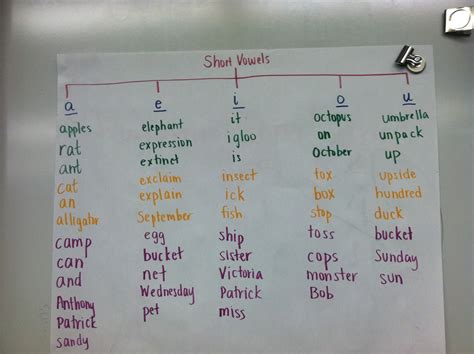 Short Vowels
a e i o u
apples elephant it octopus umbrella
rat expression igloo on unpack
ant extinct is October up
cat exclaim insect fox upside
an explain ick box hundred
alligator September fish stop duck
camp egg ship toss bucket
can bucket sister cops Sunday
and net Victoria monster sun
Anthony Wednesday Patrick Bob
Patrick pet miss
sandy